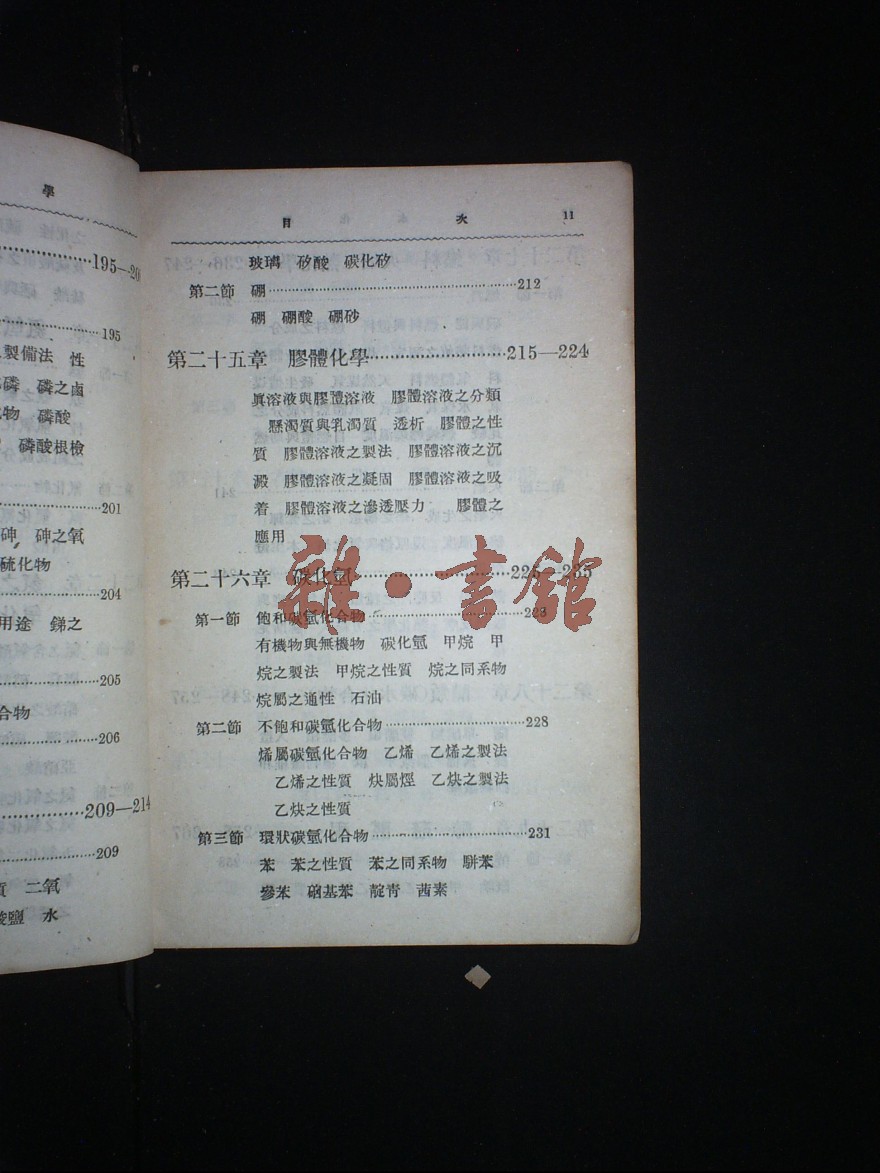 學
195—20
195
製備法 性
磷 磷之鹵
物 磷酸
磷酸根檢
201
砷 砷之氧
硫化物
204
用途 銻之
205
合物
206
209—214
209
二氧
酸鹽 水
目 次 11
玻璃 矽酸 碳化矽
第二節 硼……212
硼 硼酸 硼砂
第二十五章 膠體化學……215—224
眞溶液與膠體溶液 膠體溶液之分類
懸濁質與乳濁質 透析 膠體之性
質 膠體溶液之製法 膠體溶液之沉
澱 膠體溶液之凝固 膠體溶液之吸
着 膠體溶液之滲透壓力 膠體之
應用
第二十六章 碳化氫……225—235
雜·書館
第一節 飽和碳氫化合物……223
有機物與無機物 碳化氫 甲烷 甲
烷之製法 甲烷之性質 烷之同系物
烷屬之通性 石油
第二節 不飽和碳氫化合物……228
烯屬碳氫化合物 乙烯 乙烯之製法
乙烯之性質 炔屬烴 乙炔之製法
乙炔之性質
第三節 環狀碳氫化合物……231
苯 苯之性質 苯之同系物 駢苯
參苯 硝基苯 靛青 茜素